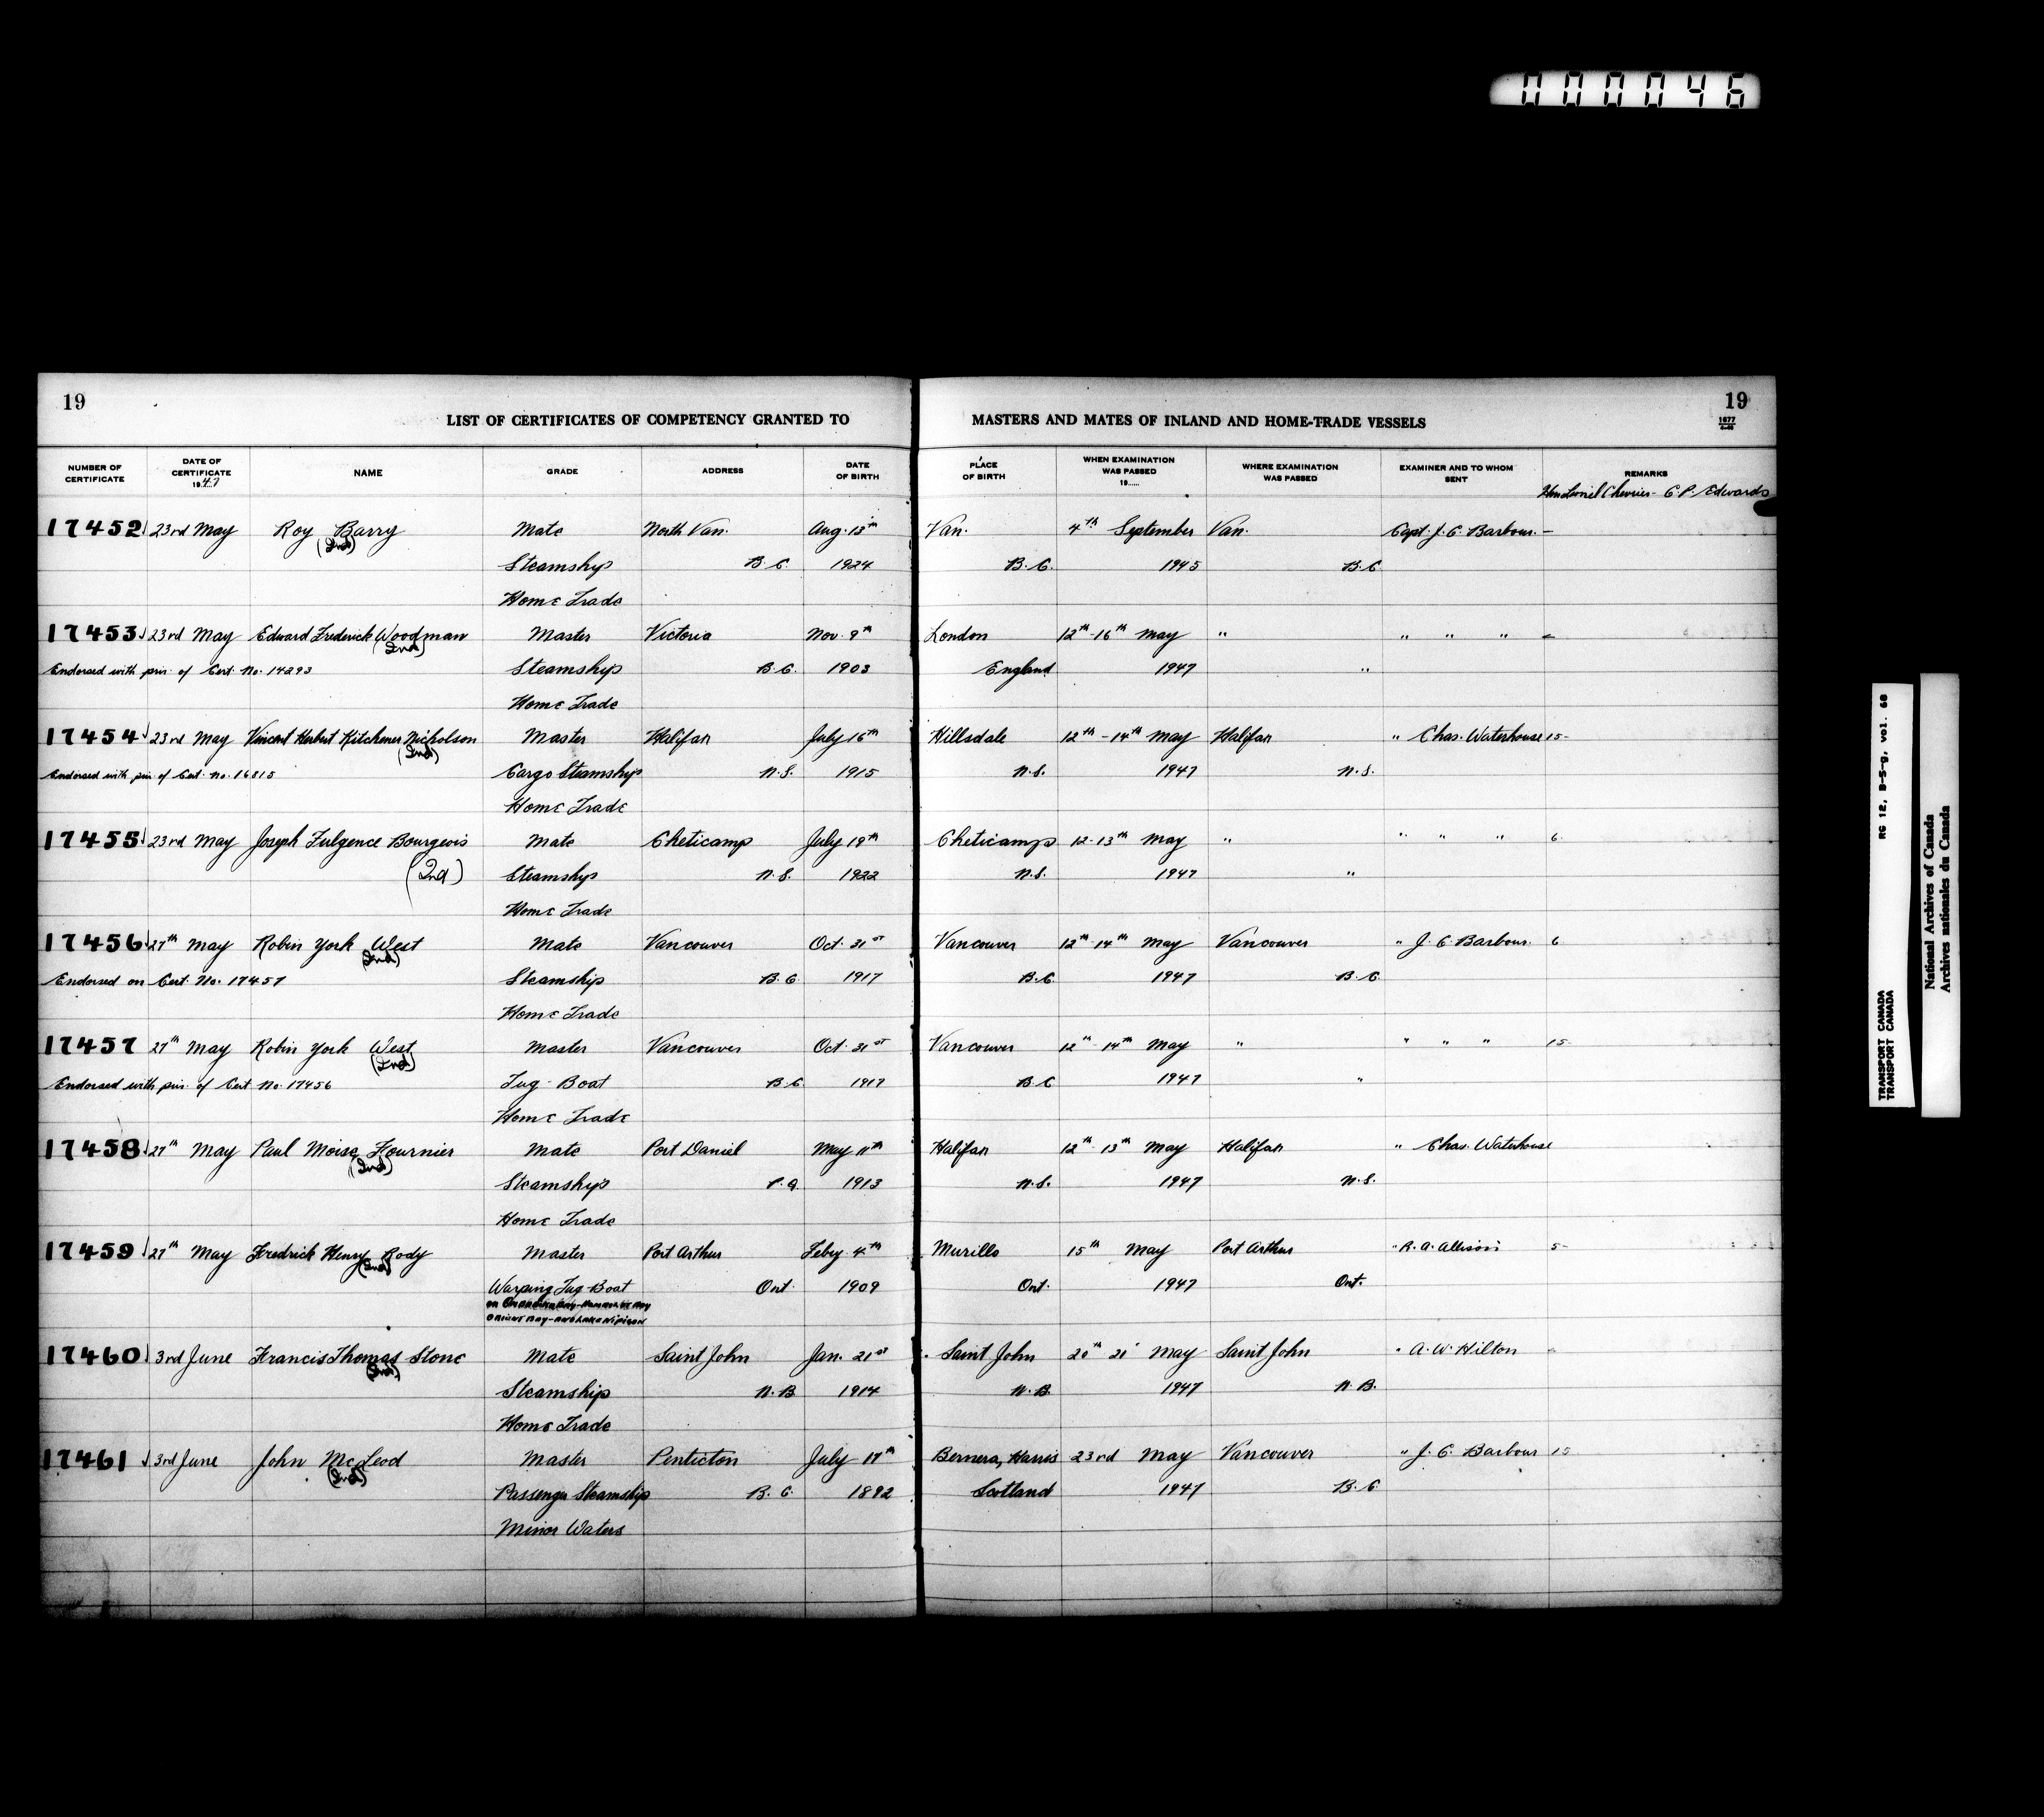 000046
19
19
1677
LIST OF CERTIFICATES OF COMPETENCY GRANTED TO MASTERS AND MATES OF INLAND AND HOME-TRADE VESSELS
NUMBER OF CERTIFICATE DATE OF CERTIFICATE 1947 NAME GRADE ADDRESS DATE OF BIRTH PLACE OF BIRTH WHEN EXAMINATION WAS PASSED 19...... WHERE EXAMINATION WAS PASSED EXAMINER AND TO WHOM SENT REMARKS
Hon Lionel Chevrier - C. P. Edwards
17452 23rd May Roy Barry Mate North Van. Aug. 13th Van. 4th September Van. Capt. J. C. Barbour. -
(Ind)
Steamship B.C. 1924 B.C. 1945 B.C.
Home Trade
17453 23rd May Edward Frederick Woodman Master Victoria Nov. 9th London 12th-16th May " " " "
(Ind)
Endorsed with priv. of Cert. No. 14293 Steamship B.C. 1903 England 1947 "
Home Trade
17454 23rd May Vincent Herbert Kitchener Nicholson Master Halifax July 16th Hillsdale 12th-14th May Halifax " Chas. Waterhouse 15-
(Ind)
Endorsed with priv. of Cert. No. 16815 Cargo Steamship N.S. 1915 N.S. 1947 N.S.
Home Trade
17455 23rd May Joseph Fulgence Bourgeois Mate Cheticamp July 19th Cheticamp 12-13th May " " " " 6
(Ind) Steamship N.S. 1922 N.S. 1947 "
Home Trade
17456 27th May Robin York West Mate Vancouver Oct. 31st Vancouver 12th-14th May Vancouver " J. C. Barbour. 6
(Ind)
Endorsed on Cert. No. 17457 Steamship B.C. 1917 B.C. 1947 B.C.
Home Trade
17457 27th May Robin York West Master Vancouver Oct. 31st Vancouver 12th-14th May " " " " 15-
(Ind)
Endorsed with priv. of Cert. No. 17456 Tug-Boat B.C. 1917 B.C. 1947 "
Home Trade
17458 27th May Paul Moise Fournier Mate Port Daniel May 11th Halifax 12th-13th May Halifax " Chas. Waterhouse
(Ind)
Steamship P.Q. 1913 N.S. 1947 N.S.
Home Trade
17459 27th May Fredrick Henry Rody Master Port Arthur Feby. 4th Murillo 15th May Port Arthur " R. A. Allison 5-
(Ind)
Warping Tug-Boat Ont. 1909 Ont. 1947 Ont.
Orient Bay - and Lake Nipigon
17460 3rd June Francis Thomas Stone Mate Saint John Jan. 21st Saint John 20th 21 May Saint John " A. W. Hilton
(Ind)
Steamship N.B. 1914 N.B. 1947 N.B.
Home Trade
17461 3rd June John McLeod Master Penticton July 17th Bernera, Harris 23rd May Vancouver " J. C. Barbour 15
(Ind)
Passenger Steamship B.C. 1892 Scotland 1947 B.C.
Minor Waters
RG 12, B-5-g, vol. 68
TRANSPORT CANADA
TRANSPORT CANADA
National Archives of Canada
Archives nationales du Canada